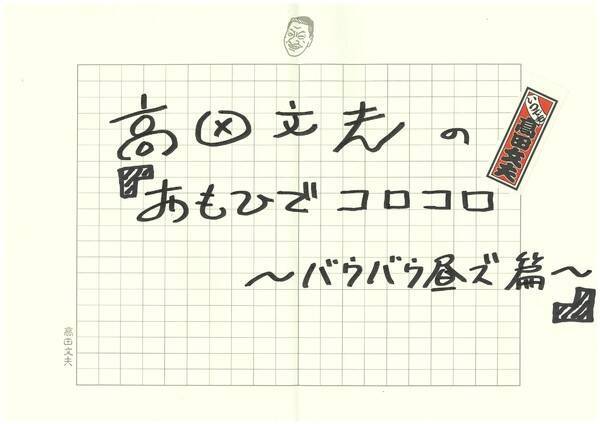 高田文夫の
『おもひでコロコロ
〜バウバウ昼ズ篇〜』
高田文夫
高田文夫